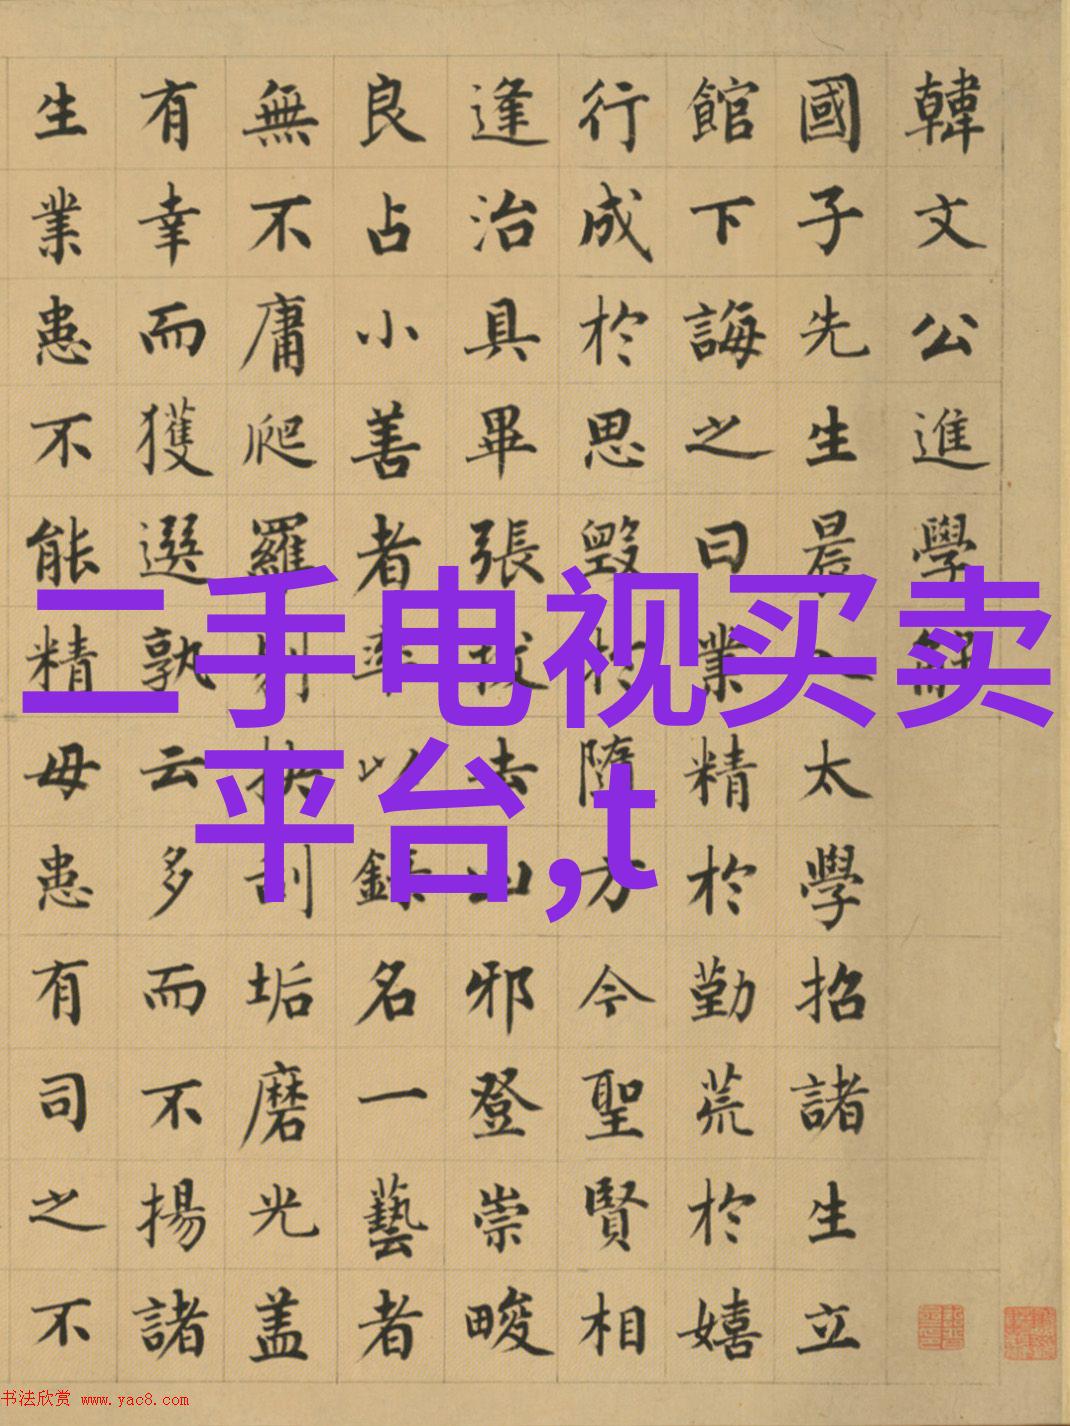 韓文公進學解
國子先生晨入太學招諸生立
館下誨之曰業精於勤荒於嬉
行成於思毀於隨方今聖賢相
逢治具畢張拔去凶邪登崇畯
良占小善者率以錄名一藝者
無不庸爬羅剔抉刮垢磨光盖
有幸而獲選孰云多而不揚諸
生業患不能精毋患有司之不
二手电视买卖
平台,t
书法欣赏 www.yac8.com